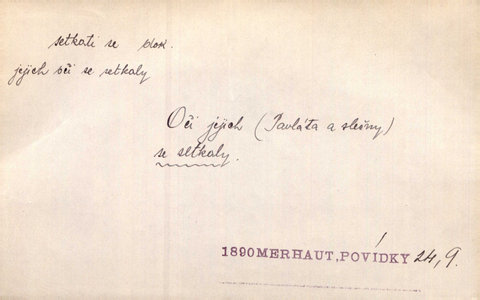 setkati se dok.
jejich oči se setkaly
Oči jejich (Pavláta a slečny)
se setkaly.
1890 MERHAUT, POVÍDKY 24, 9.